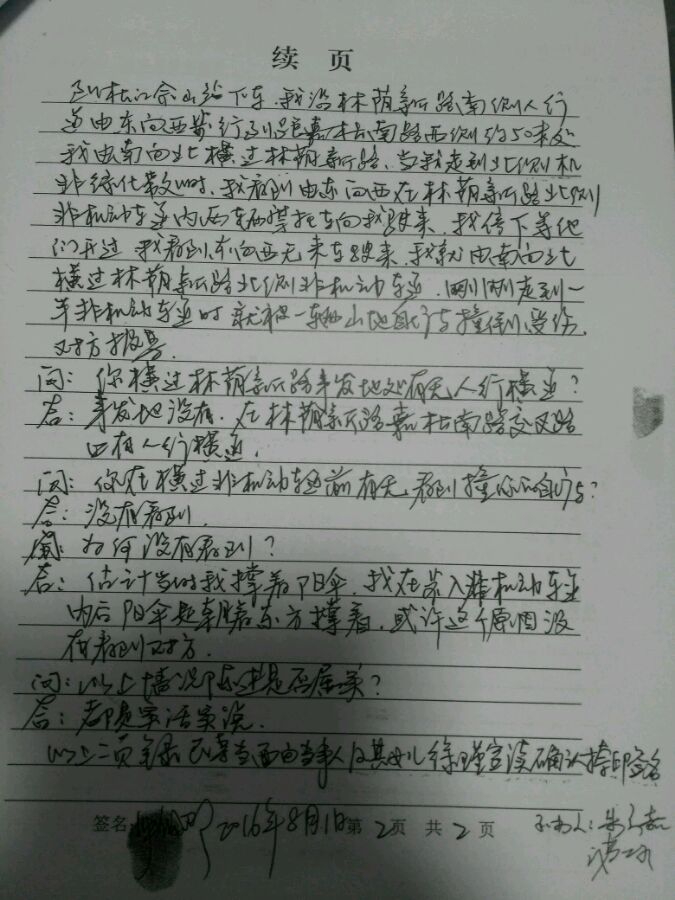 续 页
到松江佘山站下车,我沿林荫新路南侧人行
道由东向西步行到嘉松南路西侧约50米处
我由南向北横过林荫新路,当我走到北侧机
非绿化带时,我看到由东向西在林荫新路北侧
非机动车道内两车向我驶来,我停下等他
们开过,我看到东向西无来车驶来,我就由南向北
横过林荫新路北侧非机动车道,刚刚走到一
半非机动车道时就被一辆山地自行车撞倒受伤,
对方报警.
问:你横过林荫新路事发地处有无人行横道?
答:事发地没有,在林荫新路嘉松南路交叉路
口有人行横道.
问:你在横过非机动车道前有无看到撞你的自行车?
答:没有看到.
问:为何没有看到?
答:估计当时我撑着阳伞,我在进入非机动车道
内后阳伞是朝着东方撑着,或许这个原因没
有看到对方.
问:以上情况陈述是否属实?
答:都是实话实说.
以上二页笔录已当面由当事人及其女儿徐瑾宣读确认捺印签名
签名 2016年8月1日 第 2 页 共 2 页